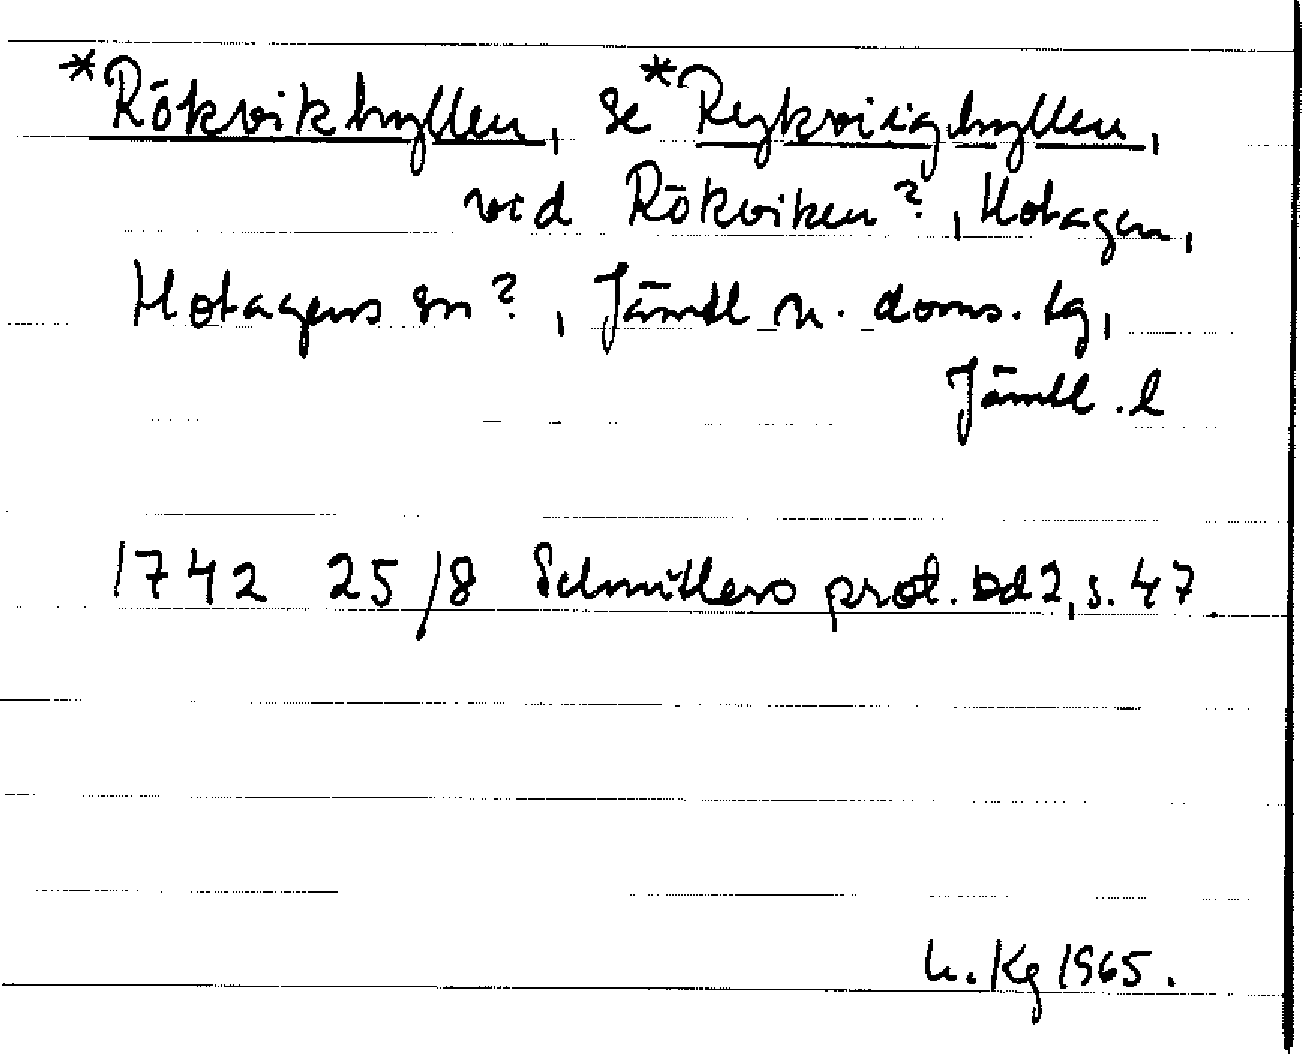 *Rökvikhyllen, se *Reykviighyllen,
vid Rökviken?, Hotagen,
Hotagens sn?, Jämtl n. doms. tg,
Jämtl. l
1742 25/8 Schnitlers prot. bd 2, s. 47.
h. Kg 1965.